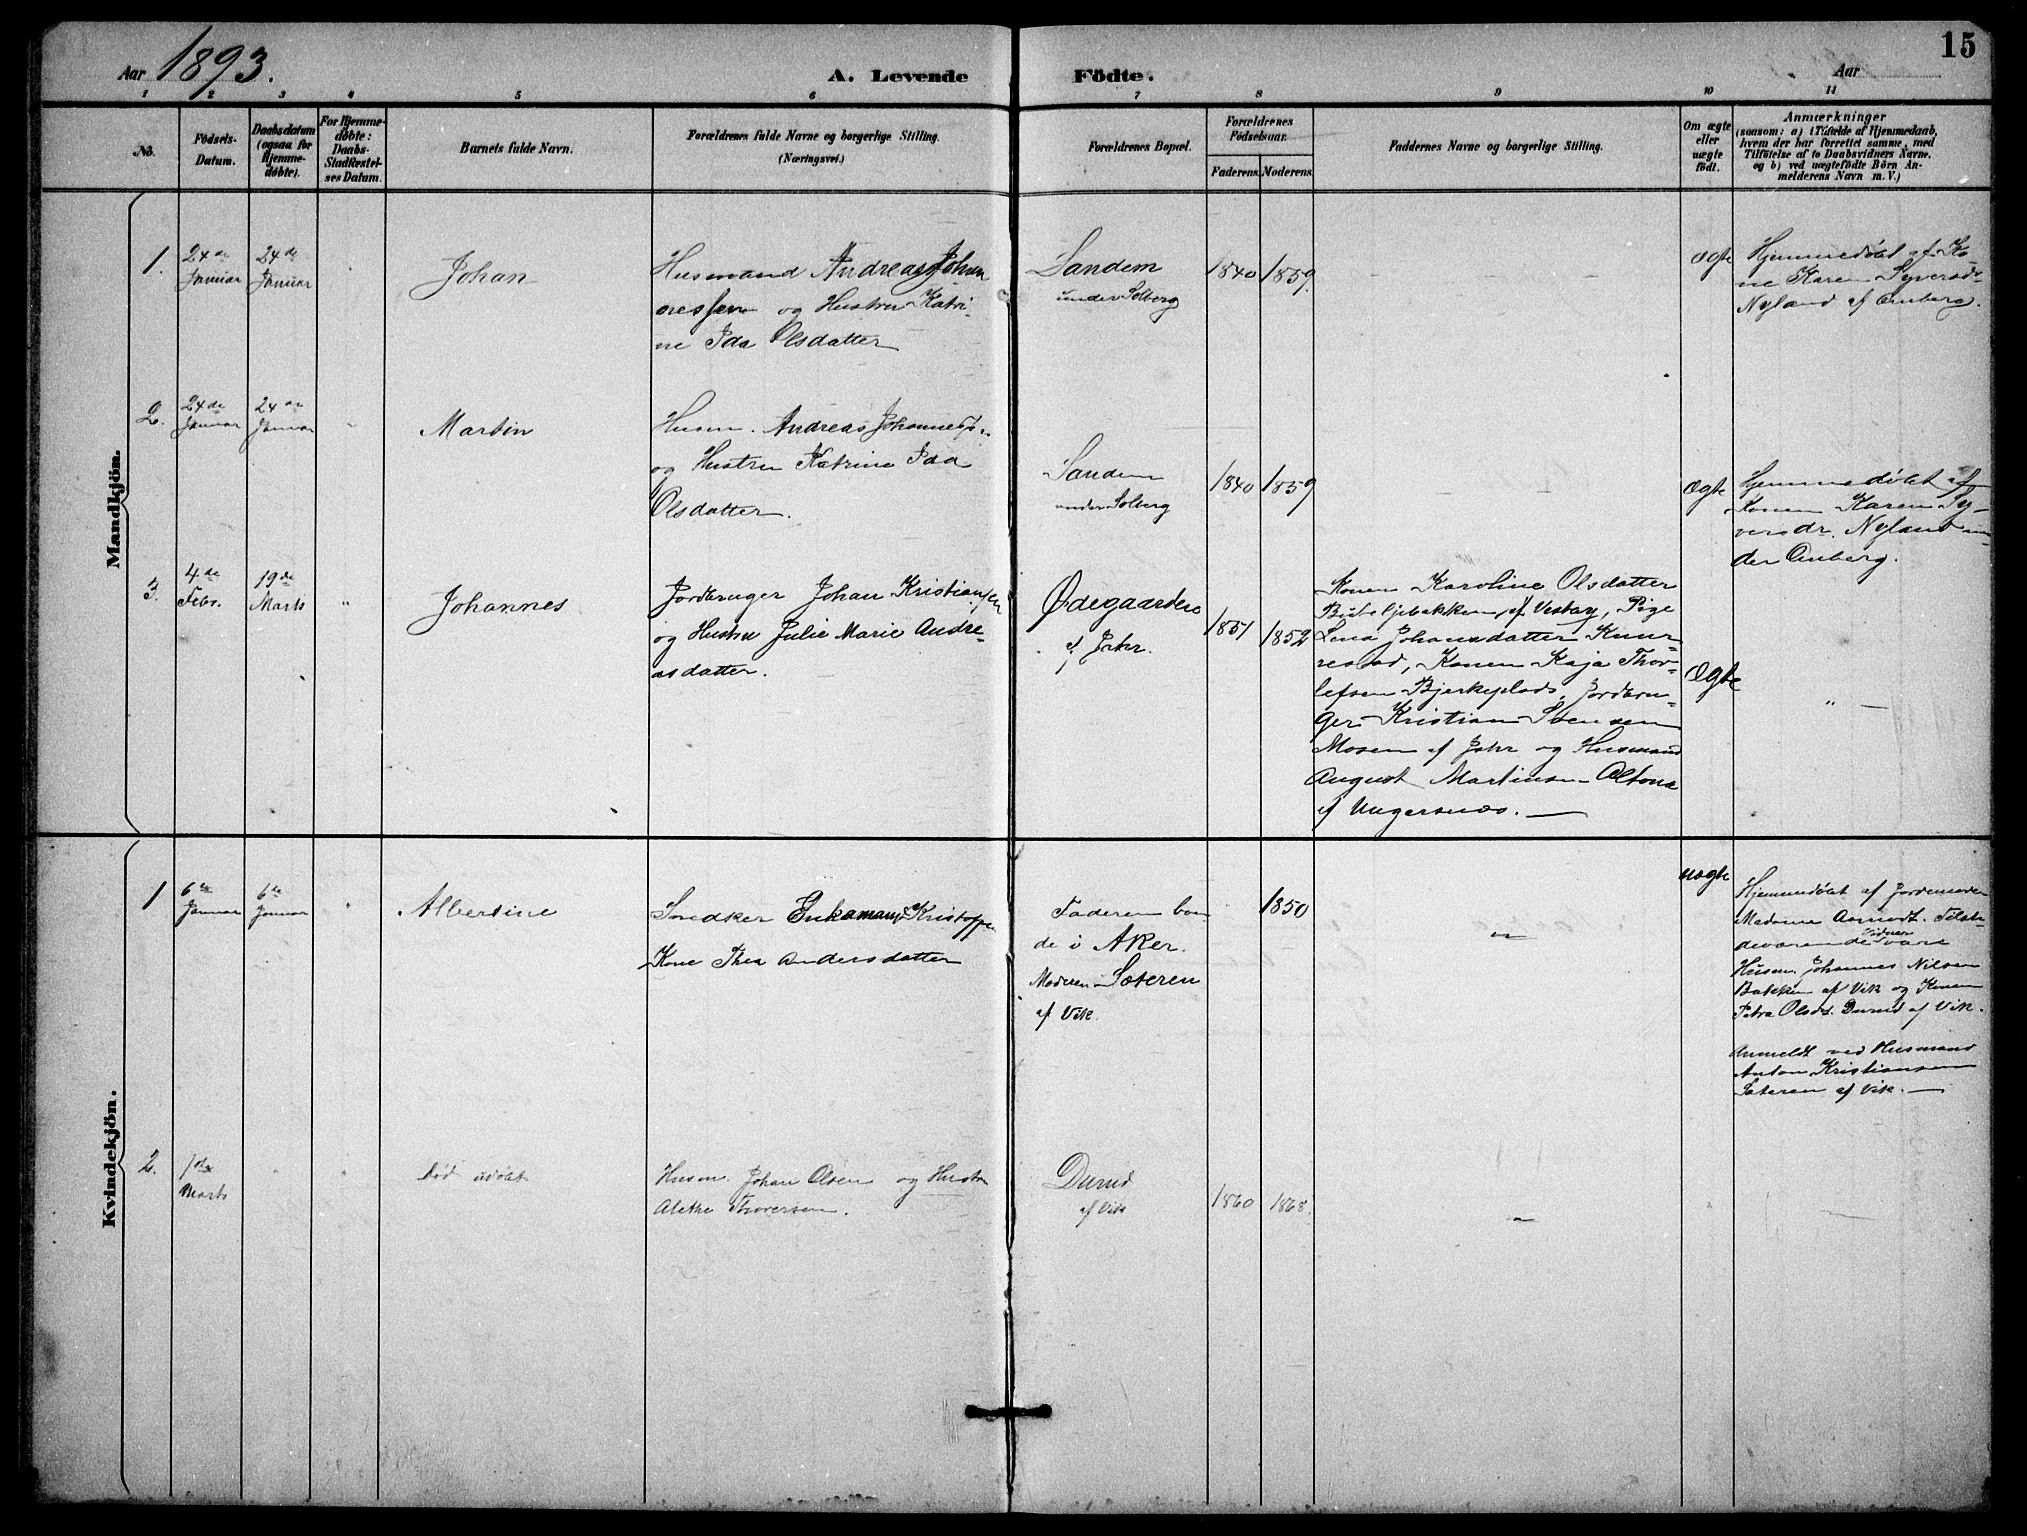 15
Aar 1893.
A. Levende Födte.
Aar
1 2 3 4 5 6 7 8 9 10 11
No.
Födsels-
Datum.
Daabsdatum
(ogsaa for
Hjemme-
döbte).
For Hjemme-
döbte:
Daabs-
Stadfæstel-
ses Datum.
Barnets fulde Navn.
Forældrenes fulde Navne og borgerlige Stilling.
(Næringsvei.)
Forældrenes Bopæl.
Forældrenes
Födselsaar.
Faderens. Moderens.
Faddernes Navne og borgerlige Stilling.
Om ægte
eller
uægte
födt.
Anmærkninger
(saasom: a) i Tilfælde af Hjemmedaab,
hvem der har forrettet samme, med
Tilföielse af to Daabsvidners Navne,
og b) ved uægtefödte Börn An-
melderens Navn m. V.)
Mandkjön.
1.
24de
Januar
24de
Januar
"
Johan
Husmand Andreas Johan
nessen og Hustru Katri-
ne Ida Olsdatter
Sandem
under Solberg
1840 1859
ægte
Hjemmedøbt af Ko-
ne Karen Syversdr
Nyland af Omberg.
2.
24de
Januar
24de
Januar
"
Martin
Husm. Andreas Johanness.
og Hustru Katrine Ida
Olsdatter.
Sandem
under Solberg
1840 1859
ægte
Hjemmedøbt af
Konen Karen Sy-
versdr. Nyland un-
der Omberg.
3.
4de
Febr.
19de
Marts
"
Johannes
Jordbruger Johan Kristiansen
og Hustru Julie Marie Andre-
asdatter.
Ødegaarden
af Jahr.
1851 1852
Konen Karoline Olsdatter
Buteljebakken af Vestby, Pige
Lena Johansdatter Knur-
restad, Konen Kaja Thor-
lefsen Bjerkeplads, Jordbru-
ger Kristian Svensen
Mosen af Jahr og Husmand
August Martinsen Altona
af Ungersnæs.
ægte
" —
Kvindekjön.
1
6te
Januar
6te
Januar
"
Albertine
Snedker Enkemand Kristoffer
Kone Thea Andersdatter
Faderen boen
de i Aker.
Moderen Sæteren
af Vik.
1850
uægte
Hjemmedøbt af Jordemoder
Madame Tilste-
deværende Vidner vare
Husm. Johannes Nilsen
Bakken af Vik og Konen
Petra Olsdt. Durud af Vik.
Anmeldt ved Husmand
Anton Kristiansen
Sæteren af Vik. —
2.
1ste
Marts
"
"
Død udøbt
Husm. Johan Olsen og Hustru
Alethe Thoresen.
Durud
af Vik
1860 1868.